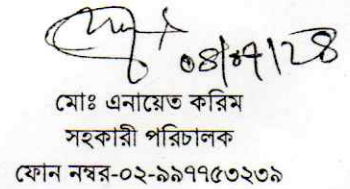 ০৪/০৭/২৪
মোঃ এনায়েত করিম
সহকারী পরিচালক
ফোন নম্বর-০২-৯৯৭৭৫৩২৩৯